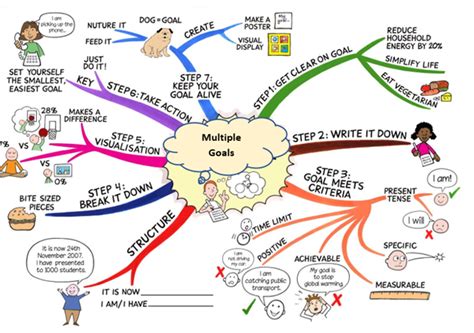 Multiple
Goals
STEP 1: GET CLEAR ON GOAL
REDUCE
HOUSEHOLD
ENERGY BY 20%
SIMPLIFY LIFE
EAT VEGETARIAN
STEP 2: WRITE IT DOWN
STEP 3:
GOAL MEETS
CRITERIA
PRESENT
TENSE
I am!
I will
SPECIFIC
MEASURABLE
ACHIEVABLE
My goal is
to stop
global warming.
POSITIVE
I am
not driving
my car
I am
catching
public transport.
TIME LIMIT
STRUCTURE
IT IS NOW
I AM / I HAVE
It is now 24th
November 2007.
I have presented
to 1000 students.
STEP 4:
BREAK IT DOWN
BITE SIZED
PIECES
STEP 5:
VISUALISATION
MAKES A
DIFFERENCE
28%
VS
VS
STEP 6: TAKE ACTION
JUST
DO IT!
KEY
SET YOURSELF
THE SMALLEST,
EASIEST GOAL
I am
picking up
the phone...
STEP 7:
KEEP YOUR
GOAL ALIVE
DOG = GOAL
NUTURE IT
FEED IT
CREATE
MAKE A
POSTER
VISUAL
DISPLAY